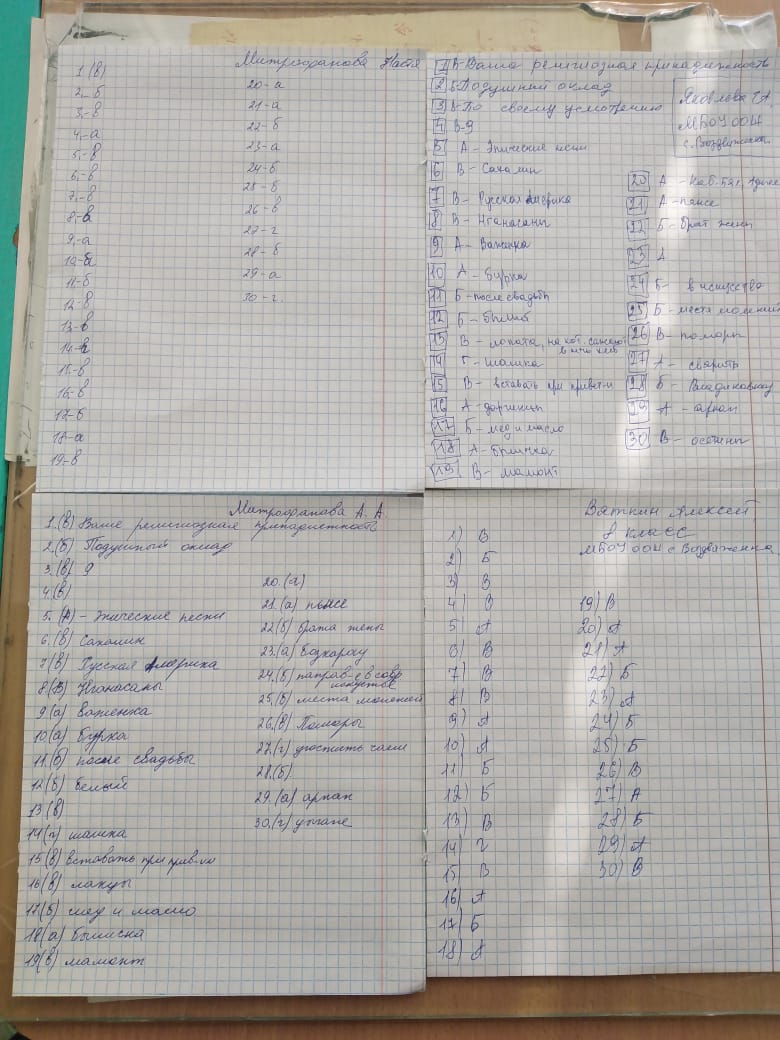 Митрофанова Настя
1.(в)
2.-б
3.-в
4.-а
5.-в
6.-в
7.-в
8.-в
9.-а
10-а
11.-б
12-в
13-в
14-г
15-в
16-в
17-б
18-а
19-в
20-а
21-а
22-б
23-а
24-б
25-б
26-в
27-г
28-б
29-а
30-г.
1 В-Ваша религиозная принадлежность
2 Б-Подушный оклад
3 В-По своему усмотрению
4 В-9
5 А-Эпические песни
6 В-Сахалин
7 В-Русская Америка
8 В-Нганасаны
9 А-Важенка
10 А-Бурка
11 Б-после свадьбы
12 Б-белый
13 В-лопата, на кот. сажают
в печь хлеб
14 Г-шашка
15 В-вставать при привет-и
16 А-даргинцы
17 Б-мед и масло
18 А-былинка
19 В-мамонт
Яковлева
МБОУ ООШ
с. Воздвиженка
20 А
21 А-пансе
22 Б-брат жены
23 А
24 Б-в искусстве
25 Б-места молений
26 В-поморы
27 А
28 Б-Владикавказ
29 А-аркан
30 В-осетины
Митрофанова А. А.
1.(в) Ваше религиозная принадлежность
2.(б) Подушный оклад
3.(в) 9
4.(в)
5.(А)-Эпические песни
6.(в) Сахалин
7(в) Русская Америка
8(в) Нганасаны
9(а) Важенка
10(а) бурка
11.(б) после свадьбы
12(б) белый
13(в)
14(г) шашка
15(в) вставать при прив-ии
16(в) лакцы
17(б) мед и масло
18(а) былиска
19(в) мамонт
20.(а)
21.(а) пансе
22(б) брата жены
23.(а) Водкарау
24.(б) направ-е в совр
искустве
25.(б) места молений
26.(в) Поморы
27.(г) угостить чаем
28.(б)
29.(а) аркан
30.(г) цыгане
Вяткин Алексей,
8 класс
МБОУ ООШ с Воздвиженка
1) В
2) Б
3) В
4) В
5) А
6) В
7) В
8) В
9) А
10) А
11) Б
12) Б
13) В
14) Г
15) В
16) А
17) Б
18) А
19) В
20) А
21) А
22) Б
23) А
24) Б
25) Б
26) В
27) А
28) Б
29) А
30) В